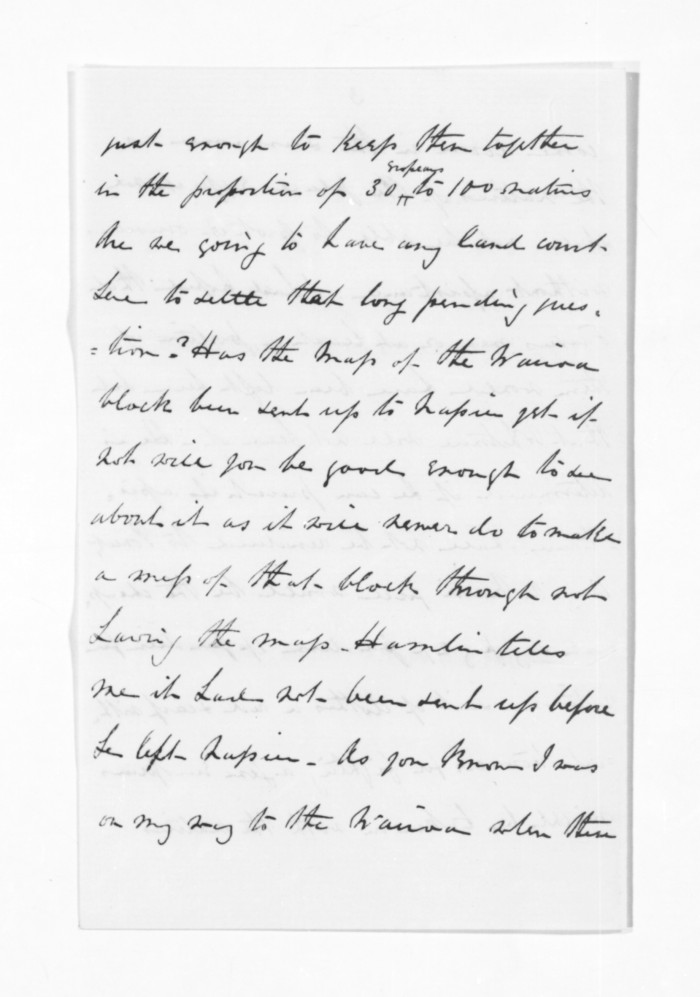 just enough to keep them together
Eropeans
in the proportion of 30 to 100 natives
Are we going to have any land court
here to settle that long pending ques-
=tion? Has the Map of the Wairoa
block been sent up to Napier yet if
not will you be good enough to see
about it as it will never do to make
a mess of that block through not
having the map - Hamlin tells
me it had not been sent up before
he left Napier - As you know I was
on my way to the Wairoa when these